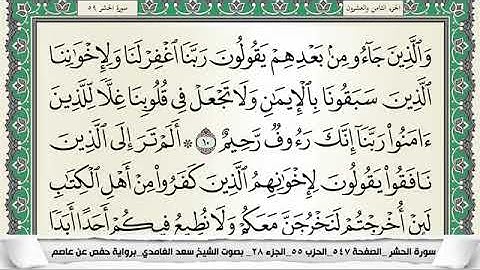 الجزء الثامن والعشرون
سورة الحشر ٥٩
وَٱلَّذِينَ جَآءُو مِنۢ بَعْدِهِمْ يَقُولُونَ رَبَّنَا ٱغْفِرْ لَنَا وَلِإِخْوَٰنِنَا
ٱلَّذِينَ سَبَقُونَا بِٱلْإِيمَٰنِ وَلَا تَجْعَلْ فِى قُلُوبِنَا غِلًّا لِّلَّذِينَ
ءَامَنُوا۟ رَبَّنَآ إِنَّكَ رَءُوفٌ رَّحِيمٌ ١٠ ۞ أَلَمْ تَرَ إِلَى ٱلَّذِينَ
نَافَقُوا۟ يَقُولُونَ لِإِخْوَٰنِهِمُ ٱلَّذِينَ كَفَرُوا۟ مِنْ أَهْلِ ٱلْكِتَٰبِ
لَئِنْ أُخْرِجْتُمْ لَنَخْرُجَنَّ مَعَكُمْ وَلَا نُطِيعُ فِيكُمْ أَحَدًا أَبَدًا
سورة الحشر _الصفحة ٥٤٧_الحزب ٥٥_الجزء ٢٨_ بصوت الشيخ سعد الغامدي_برواية حفص عن عاصم